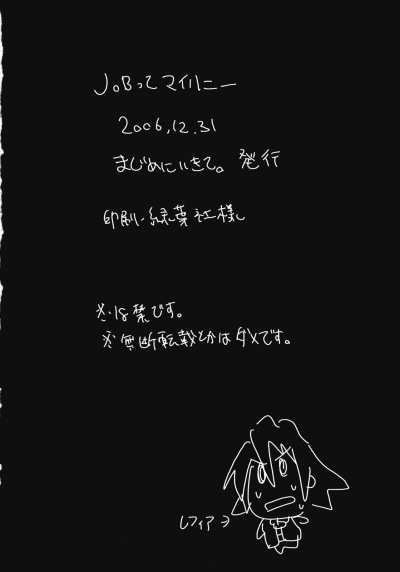 JoBってマイハニー
2006.12.31
まじめにいきて。発行
印刷、緑葉社様
※18禁です。
※無断転載とかはダメです。
レフィア